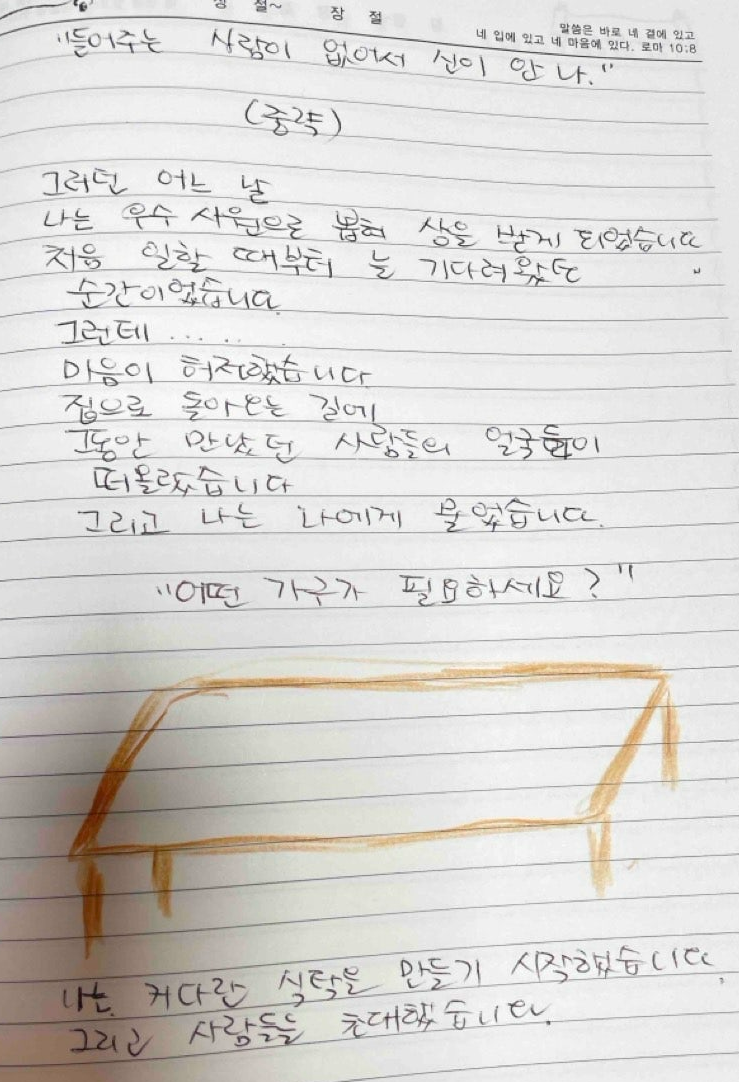 장 절~ 장 절
말씀은 바로 네 곁에 있고
네 입에 있고 네 마음에 있다. 로마 10:8
"들어주는 사람이 없어서 신이 안 나."
(중략)
그러던 어느 날
나는 우수 사원으로 뽑혀 상을 받게 되었습니다
처음 일할 때부터 늘 기다려왔던
순간이었습니다
그런데 ......
마음이 허전했습니다
집으로 돌아오는 길에
그동안 만났던 사람들의 얼굴들이
떠올랐습니다
그리고 나는 나에게 물었습니다.
"어떤 가구가 필요하세요?"
나는 커다란 식탁을 만들기 시작했습니다.
그리고 사람들을 초대했습니다.